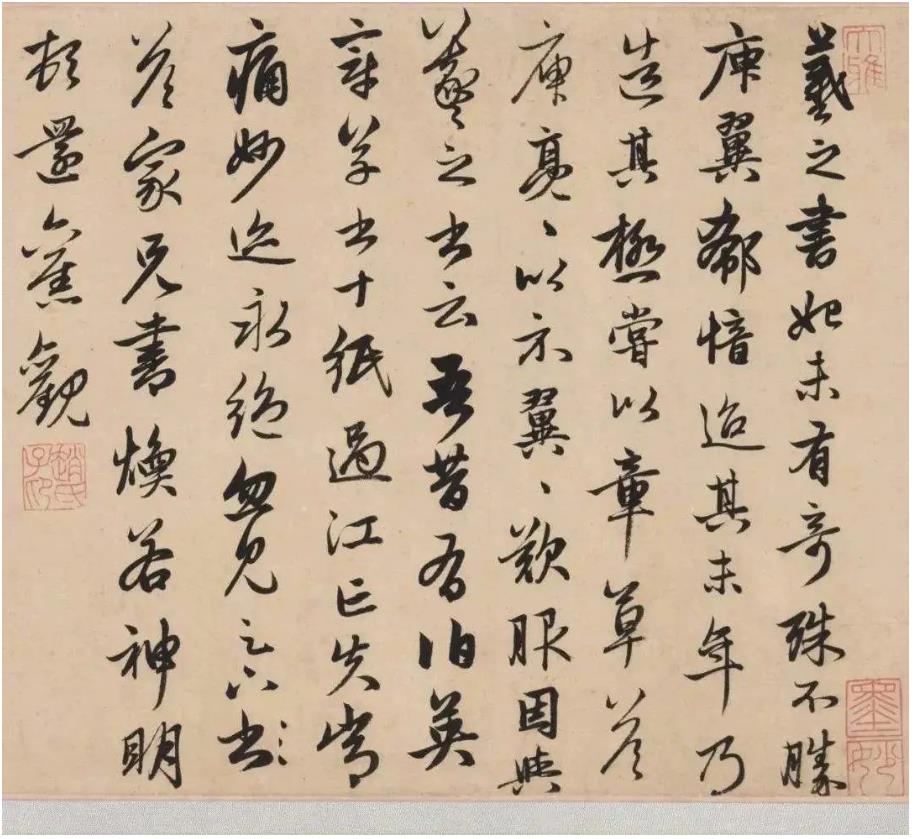 大雅
羲之書始未有奇殊不勝
庾翼郗愔迨其末年乃
造其極嘗以章草答
庾亮、以示翼、歎服因與
羲之書云吾昔有伯英
章草書十紙過江亡失常
痛妙迹永絕忽見足下書
答家兄書煥若神明
頓還舊觀
趙氏子昂
墨妙